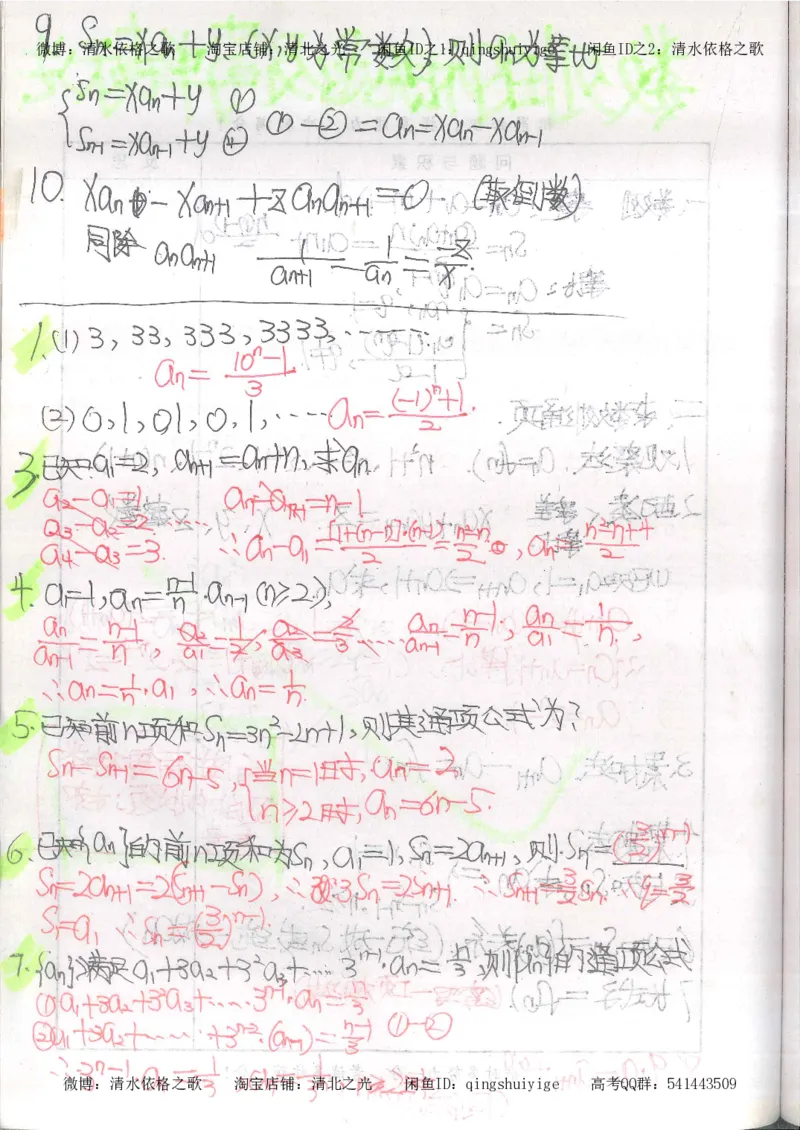 9. Sn=xan+y.(x,y为常数),则an为等比
微博：清水依格之歌 淘宝店铺：清北之光 闲鱼ID之1：qingshuiyige 闲鱼ID之2：清水依格之歌
{Sn=xan+y ①
Sn-1=xan-1+y ② ①-②=an=xan-xan-1
10. xan-xan+1+zanan+1=0. (取倒数)
同除 anan+1 1/an+1 - 1/an = -z/x.
1.(1)3, 33, 333, 3333, ……
an=(10^n-1)/3
(2)0,1,01,0,1,…… an=((-1)^n+1)/2.
3.已知a1=2, an+1=an+n,求an.
a2-a1=1 an-an-1=n-1
a3-a2=2 ……
a4-a3=3. ∴an-a1=[1+(n-1)]·(n-1)/2=(n²-n)/2, an=(n²-n+4)/2
4. a1=1,an=(n-1)/n·an-1(n≥2),
an/an-1=(n-1)/n, a2/a1=1/2, a2/a3=2/3…… an/an-1=(n-1)/n, an/a1=1/n,
∴an=1/n·a1, ∴an=1/n.
5.已知前n项和Sn=3n²-2n+1,则其通项公式为?
Sn-Sn-1=6n-5,{当n=1时,an=2
n≥2时,an=6n-5.
6.已知{an}的前n项和为Sn,a1=1,Sn=2an+1,则Sn=(3/2)^(n-1)
Sn=2an+1=2(Sn+1-Sn), ∴3Sn=2Sn+1. ∴Sn+1=3/2Sn. q=3/2
S=a1 ∴Sn=(3/2)^(n-1).
7.{an}满足a1+3a2+3²a3+…3^(n-1)·an=n/3,则{an}的通项公式
①a1+3a2+3²a3+…3^(n-1)·an=n/3
②a1+3a2+……+3^(n-2)·(an-1)=(n-1)/3 ①-②
微博：清水依格之歌 淘宝店铺：清北之光 闲鱼ID：qingshuiyige 高考QQ群：541443509